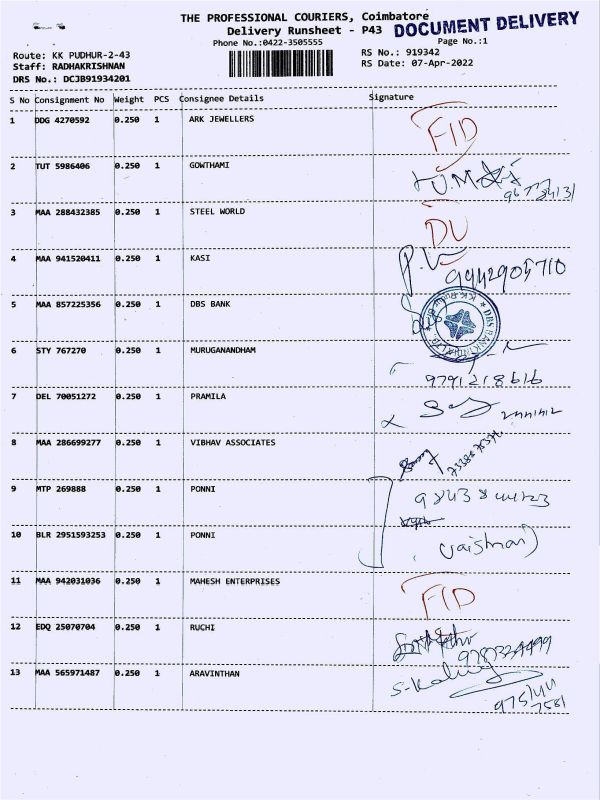 THE PROFESSIONAL COURIERS, Coimbatore
DOCUMENT DELIVERY
Delivery Runsheet - P43
Phone No.:0422-3505555
Page No.:1
Route: KK PUDHUR-2-43
RS No.: 919342
Staff: RADHAKRISHNAN
RS Date: 07-Apr-2022
DRS No.: DCJB91934201
S No Consignment No Weight PCS Consignee Details Signature
1 DDG 4270592 0.250 1 ARK JEWELLERS FID
2 TUT 5986406 0.250 1 GOWTHAMI
3 MAA 288432385 0.250 1 STEEL WORLD DU
4 MAA 941520411 0.250 1 KASI
9942905710
5 MAA 857225356 0.250 1 DBS BANK
DBS BANK INDIA LTD
6 STY 767270 0.250 1 MURUGANANDHAM
9791218616
7 DEL 70051272 0.250 1 PRAMILA
8 MAA 286699277 0.250 1 VIBHAV ASSOCIATES
9 MTP 269888 0.250 1 PONNI
10 BLR 2951593253 0.250 1 PONNI
(Vaishnavi)
11 MAA 942031036 0.250 1 MAHESH ENTERPRISES FID
12 EDQ 25070704 0.250 1 RUCHI
13 MAA 565971487 0.250 1 ARAVINTHAN